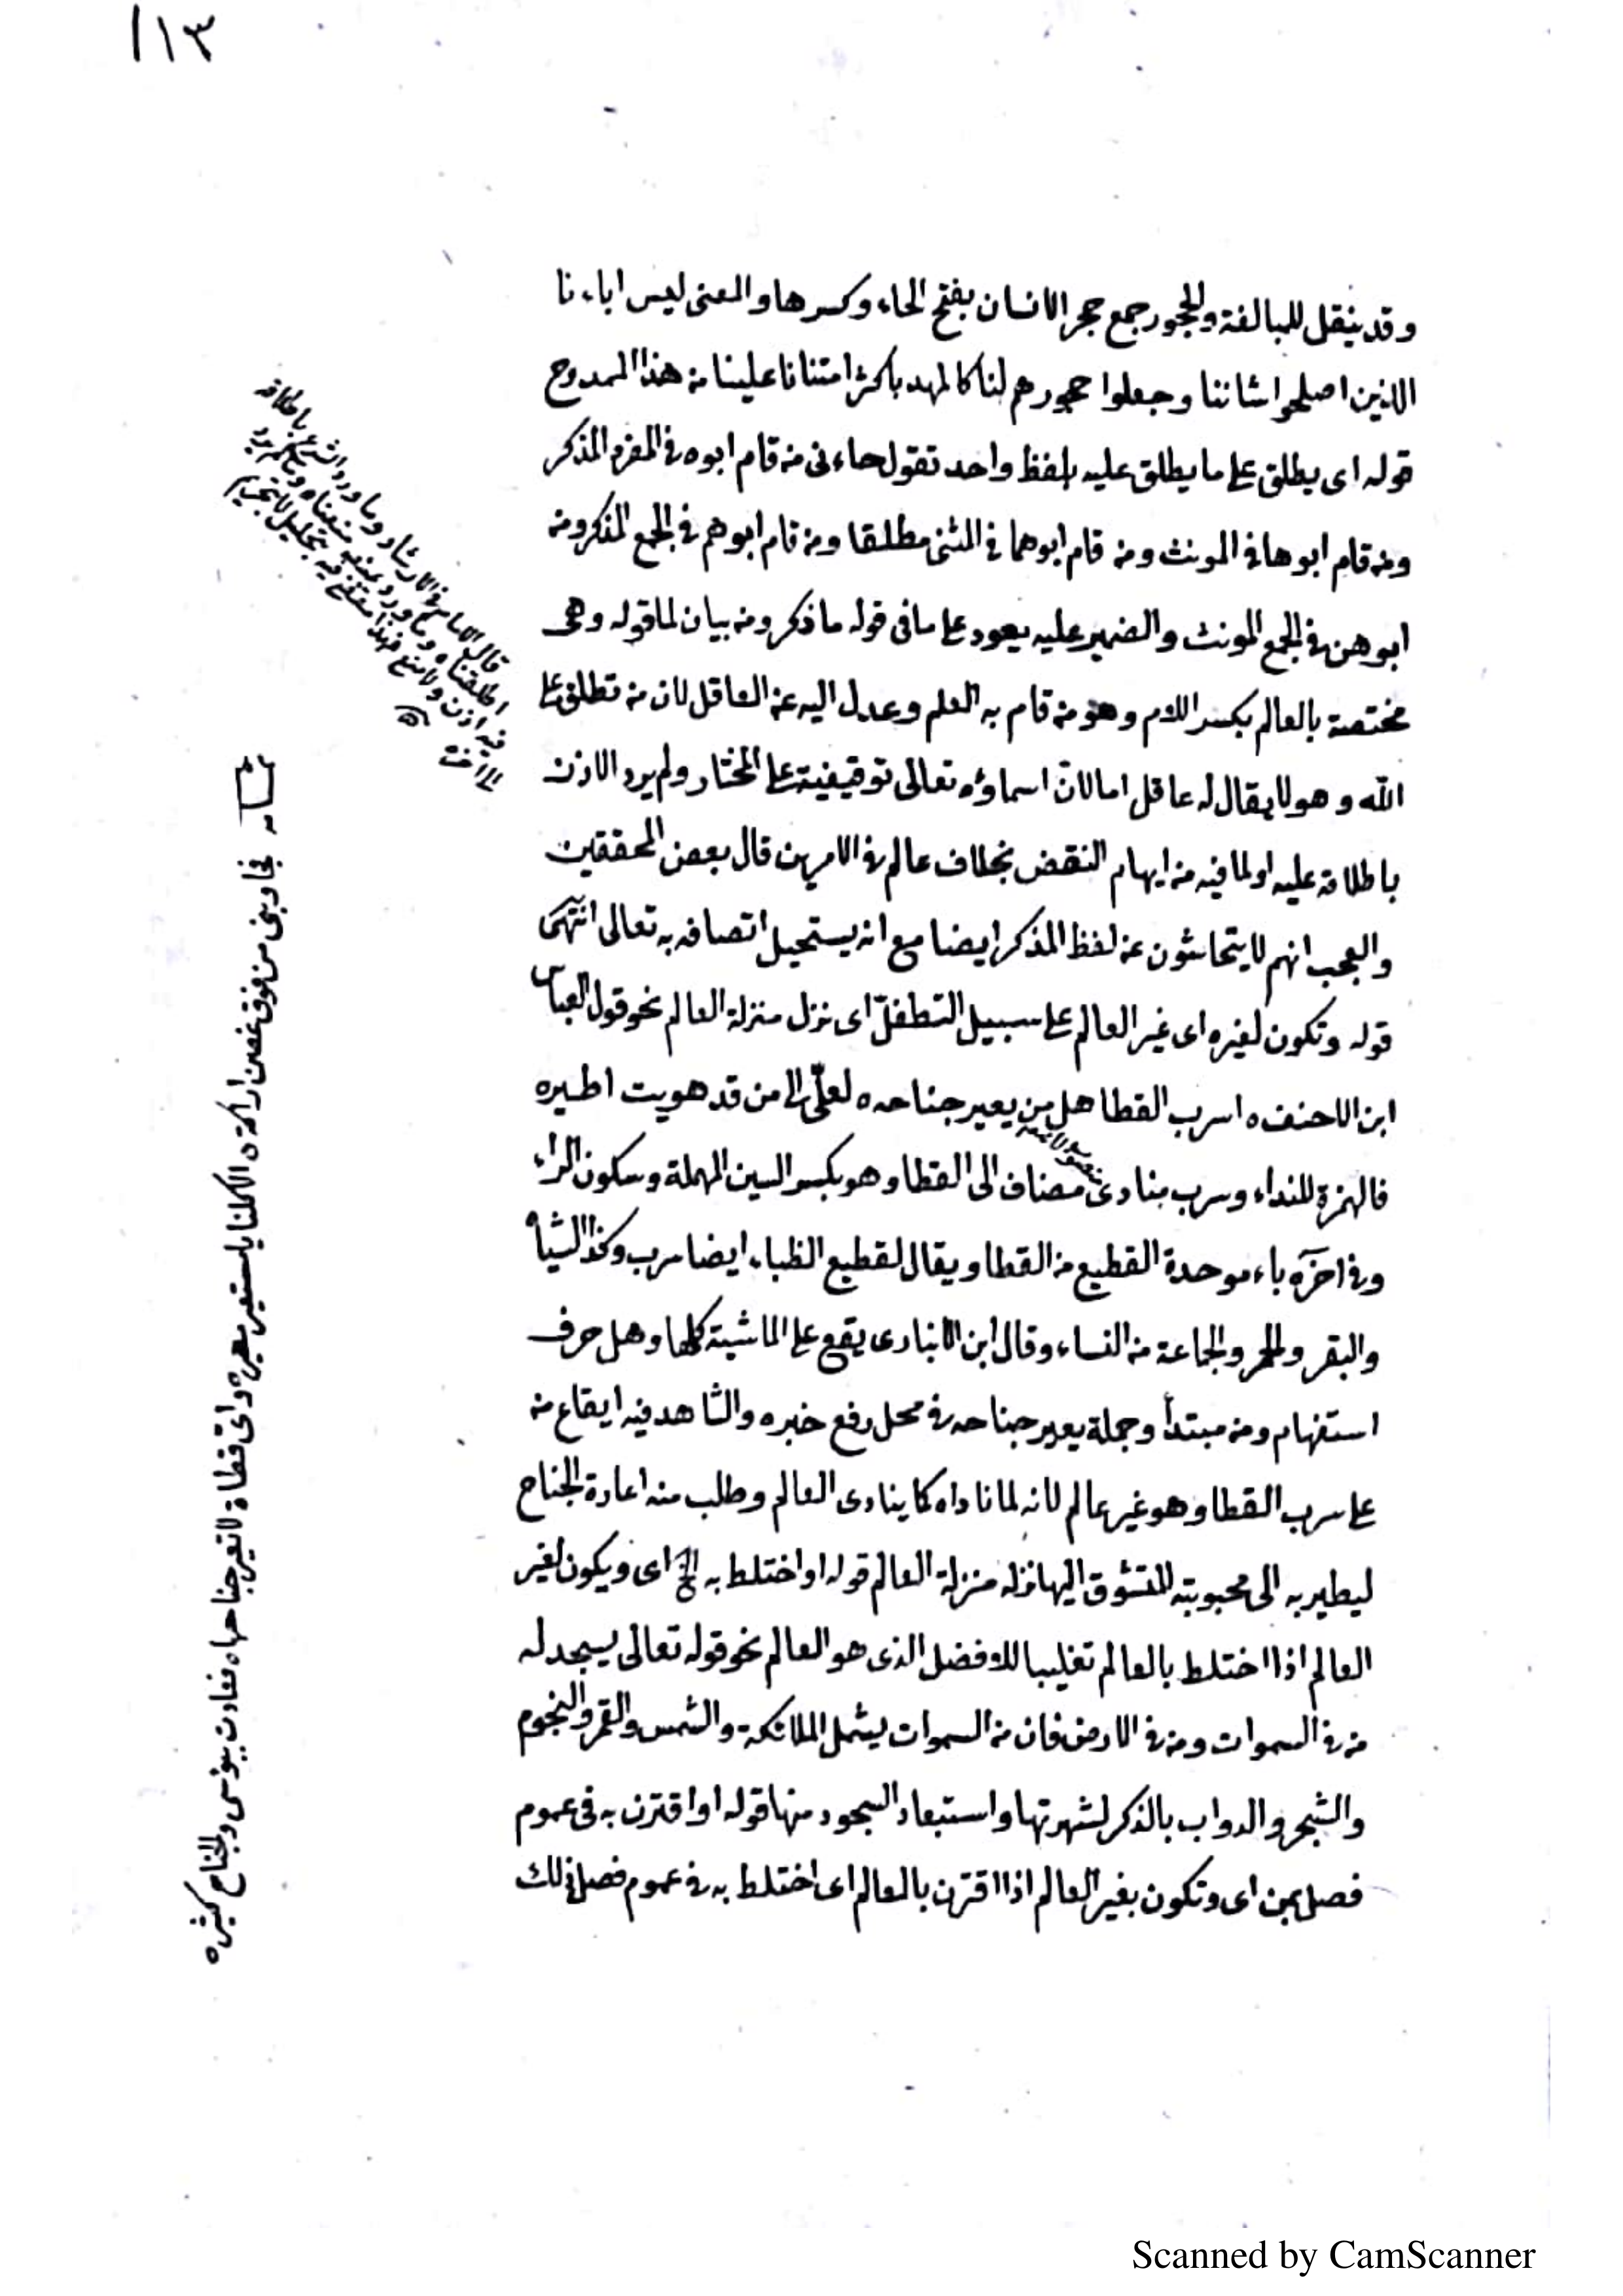 ١١٣
وقد ينقل للمبالغة والحجور جمع حجر الانسان بفتح الحاء وكسرها والمعنى ليس اباءنا
الذين اصلحوا شاننا وجعلوا حجورهم لنا كالمهد باكثر امتنانا علينا من هذا الممدوح
قوله اى يطلق على ما يطلق عليه بلفظ واحد تقول جاءنى من قام ابوه فى المفرد المذكر
ومن قام ابوها فى المونث ومن قام ابوهما فى المثنى مطلقا ومن قام ابوهم فى الجمع المذكر ومن
ابوهن فى الجمع المونث والضمير عليه يعود على ما فى قوله ما ذكر ومن بيان لما قوله وهى
مختصة بالعالم بكسر اللام وهو من قام به العلم وعدل اليه عن العاقل لان من تطلق على
الله وهو لا يقال له عاقل اما لانّ اسماؤه تعالى توقيفية على المختار ولم يرد الاذن
باطلاقه عليه او لما فيه من ايهام النقض بخلاف عالم فى الامرين قال بعض المحققين
والعجب انهم لا يتحاشون عن لفظ المذكر ايضا مع انه يستحيل اتصافه به تعالى انتهى
قوله وتكون لغيره اى غير العالم على سبيل التطفلّ اى نزل منزلة العالم نحو قول العباس
ابن الاحنف ه اسرب القطا هل من يعير جناحه ه لعلّى الى من قد هويت اطيره
فالهمزة للنداء وسرب منادى مضاف الى القطا وهو بكسر السين المهملة وسكون الراء
وفى اخرَه باء موحدة القطيع من القطا ويقال لقطيع الظباء ايضا سرب وكذا الشياه
والبقر والحمر والجماعة من النساء وقال ابن الانبارى يقع على الماشية كلها وهل حرف
استفهام ومن مبتدأ وجملة يعير جناحه فى محل رفع خبره والشاهد فيه ايقاع من
على سرب القطا وهو غير عالم لانه لما ناداه كما ينادى العالم وطلب منه اعارة الجناح
ليطير به الى محبوبته للتشوق اليها نزله منزلة العالم قوله او اختلط به الخ اى ويكون لغير
العالم اذا اختلط بالعالم تغليبا للافضل الذى هو العالم نحو قوله تعالى يسجد له
من فى السموات ومن فى الارض فان من السموات يشمل الملائكة والشمس والقمر والنجوم
والشجر والدواب بالذكر لشهرتها واستبعاد السجود منها قوله او اقترن به فى عموم
فصل بمن اى وتكون بغير العالم اذا اقترن بالعالم اى اختلط به فى عموم فصل ذلك
قال الامام فى الارشاد وما ورد الشرع باطلاقه
اطلقناه وما ورد بمنعه منعناه وما لم يرد
فيه اذن ولا منع
فجاوبنى من فوق غصن اراكة ه الا كلنا يا مستعير معيره واى قطاة لا تعير جناحها ه فعادت ببؤسى والجناح كثيره
Scanned by CamScanner